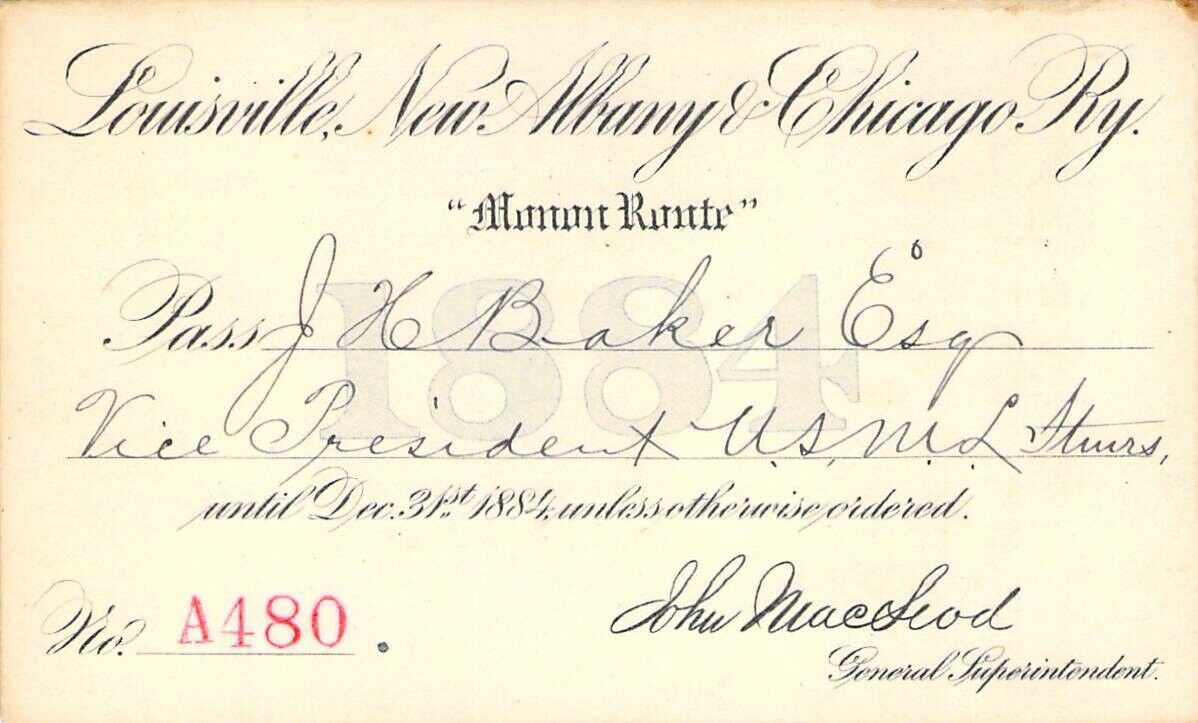 Louisville, New Albany & Chicago Ry.
"Monon Route"
1884
Pass J H Baker Esq
Vice President U.S. M. L Stmrs,
until Dec. 31st 1884, unless otherwise ordered.
No. A480.
John MacLeod
General Superintendent.